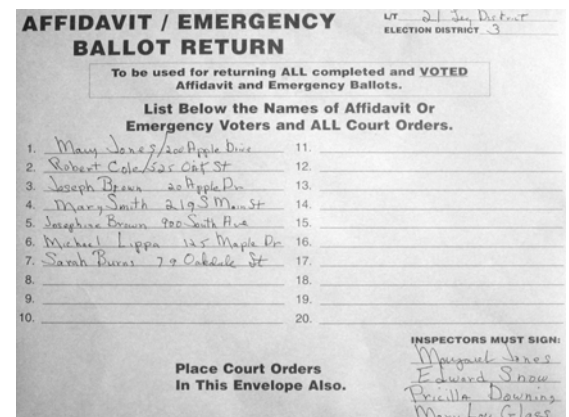 AFFIDAVIT / EMERGENCY
BALLOT RETURN
L/T 21 Leg District
ELECTION DISTRICT 3
To be used for returning ALL completed and VOTED
Affidavit and Emergency Ballots.
List Below the Names of Affidavit Or
Emergency Voters and ALL Court Orders.
1. Mary Jones/200 Apple Drive
2. Robert Cole/525 Oak St
3. Joseph Brown 20 Apple Dr
4. Mary Smith 219 S Main St
5. Josephine Brown 900 South Ave
6. Michael Lippa 125 Maple Dr
7. Sarah Burns 79 Oakdale St
8.
9.
10.
11.
12.
13.
14.
15.
16.
17.
18.
19.
20.
Place Court Orders
In This Envelope Also.
INSPECTORS MUST SIGN:
Margaret Jones
Edward Snow
Pricilla Downing
Mary Lou Glass